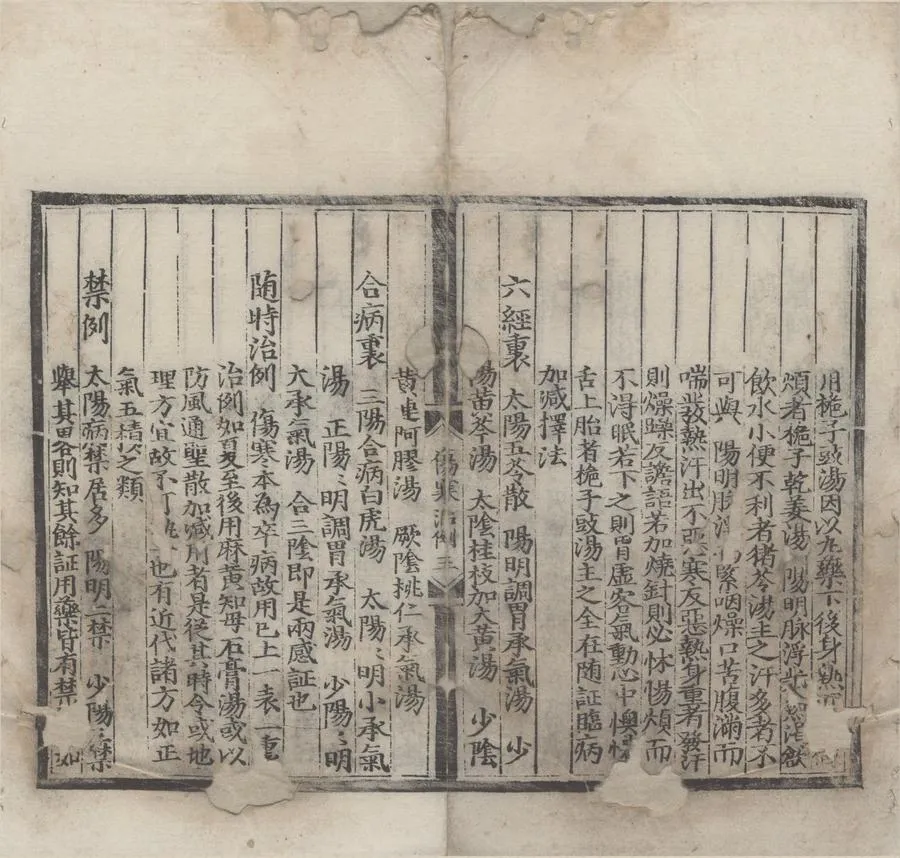 用梔子豉湯因以丸藥下後身熱
煩者梔子乾姜湯 陽明脉浮
飲水小便不利者猪苓湯主之汗多者不
可與 陽明脉 緊咽燥口苦腹滿而
喘發熱汗出不惡寒反惡熱身重者發汗
則燥躁反譫語若加燒針則必怵惕煩而
不得眠若下之則胃虛客氣動心中懊憹
舌上胎者梔子豉湯主之全在随証臨病
加減擇法
六經裏 太陽五苓散 陽明調胃承氣湯 少
陽黄芩湯 太陰桂枝加大黄湯 少陰
傷寒治例 五
黄連阿膠湯 厥陰桃仁承氣湯
合病裏 三陽合病白虎湯 太陽〻明小承氣
湯 正陽〻明調胃承氣湯 少陽〻明
大承氣湯 合三陰即是兩感証也
随時治例 傷寒本為卒病故用已上一表一裏
治例如夏至後用麻黄知母石膏湯或以
防風通聖散加減用者是從其時令或地
理方宜故不可 也有近代諸方如正
氣五積之類
禁例 太陽病禁居多 陽明二禁 少陽〻禁
舉其畧則知其餘証用藥皆有禁 如